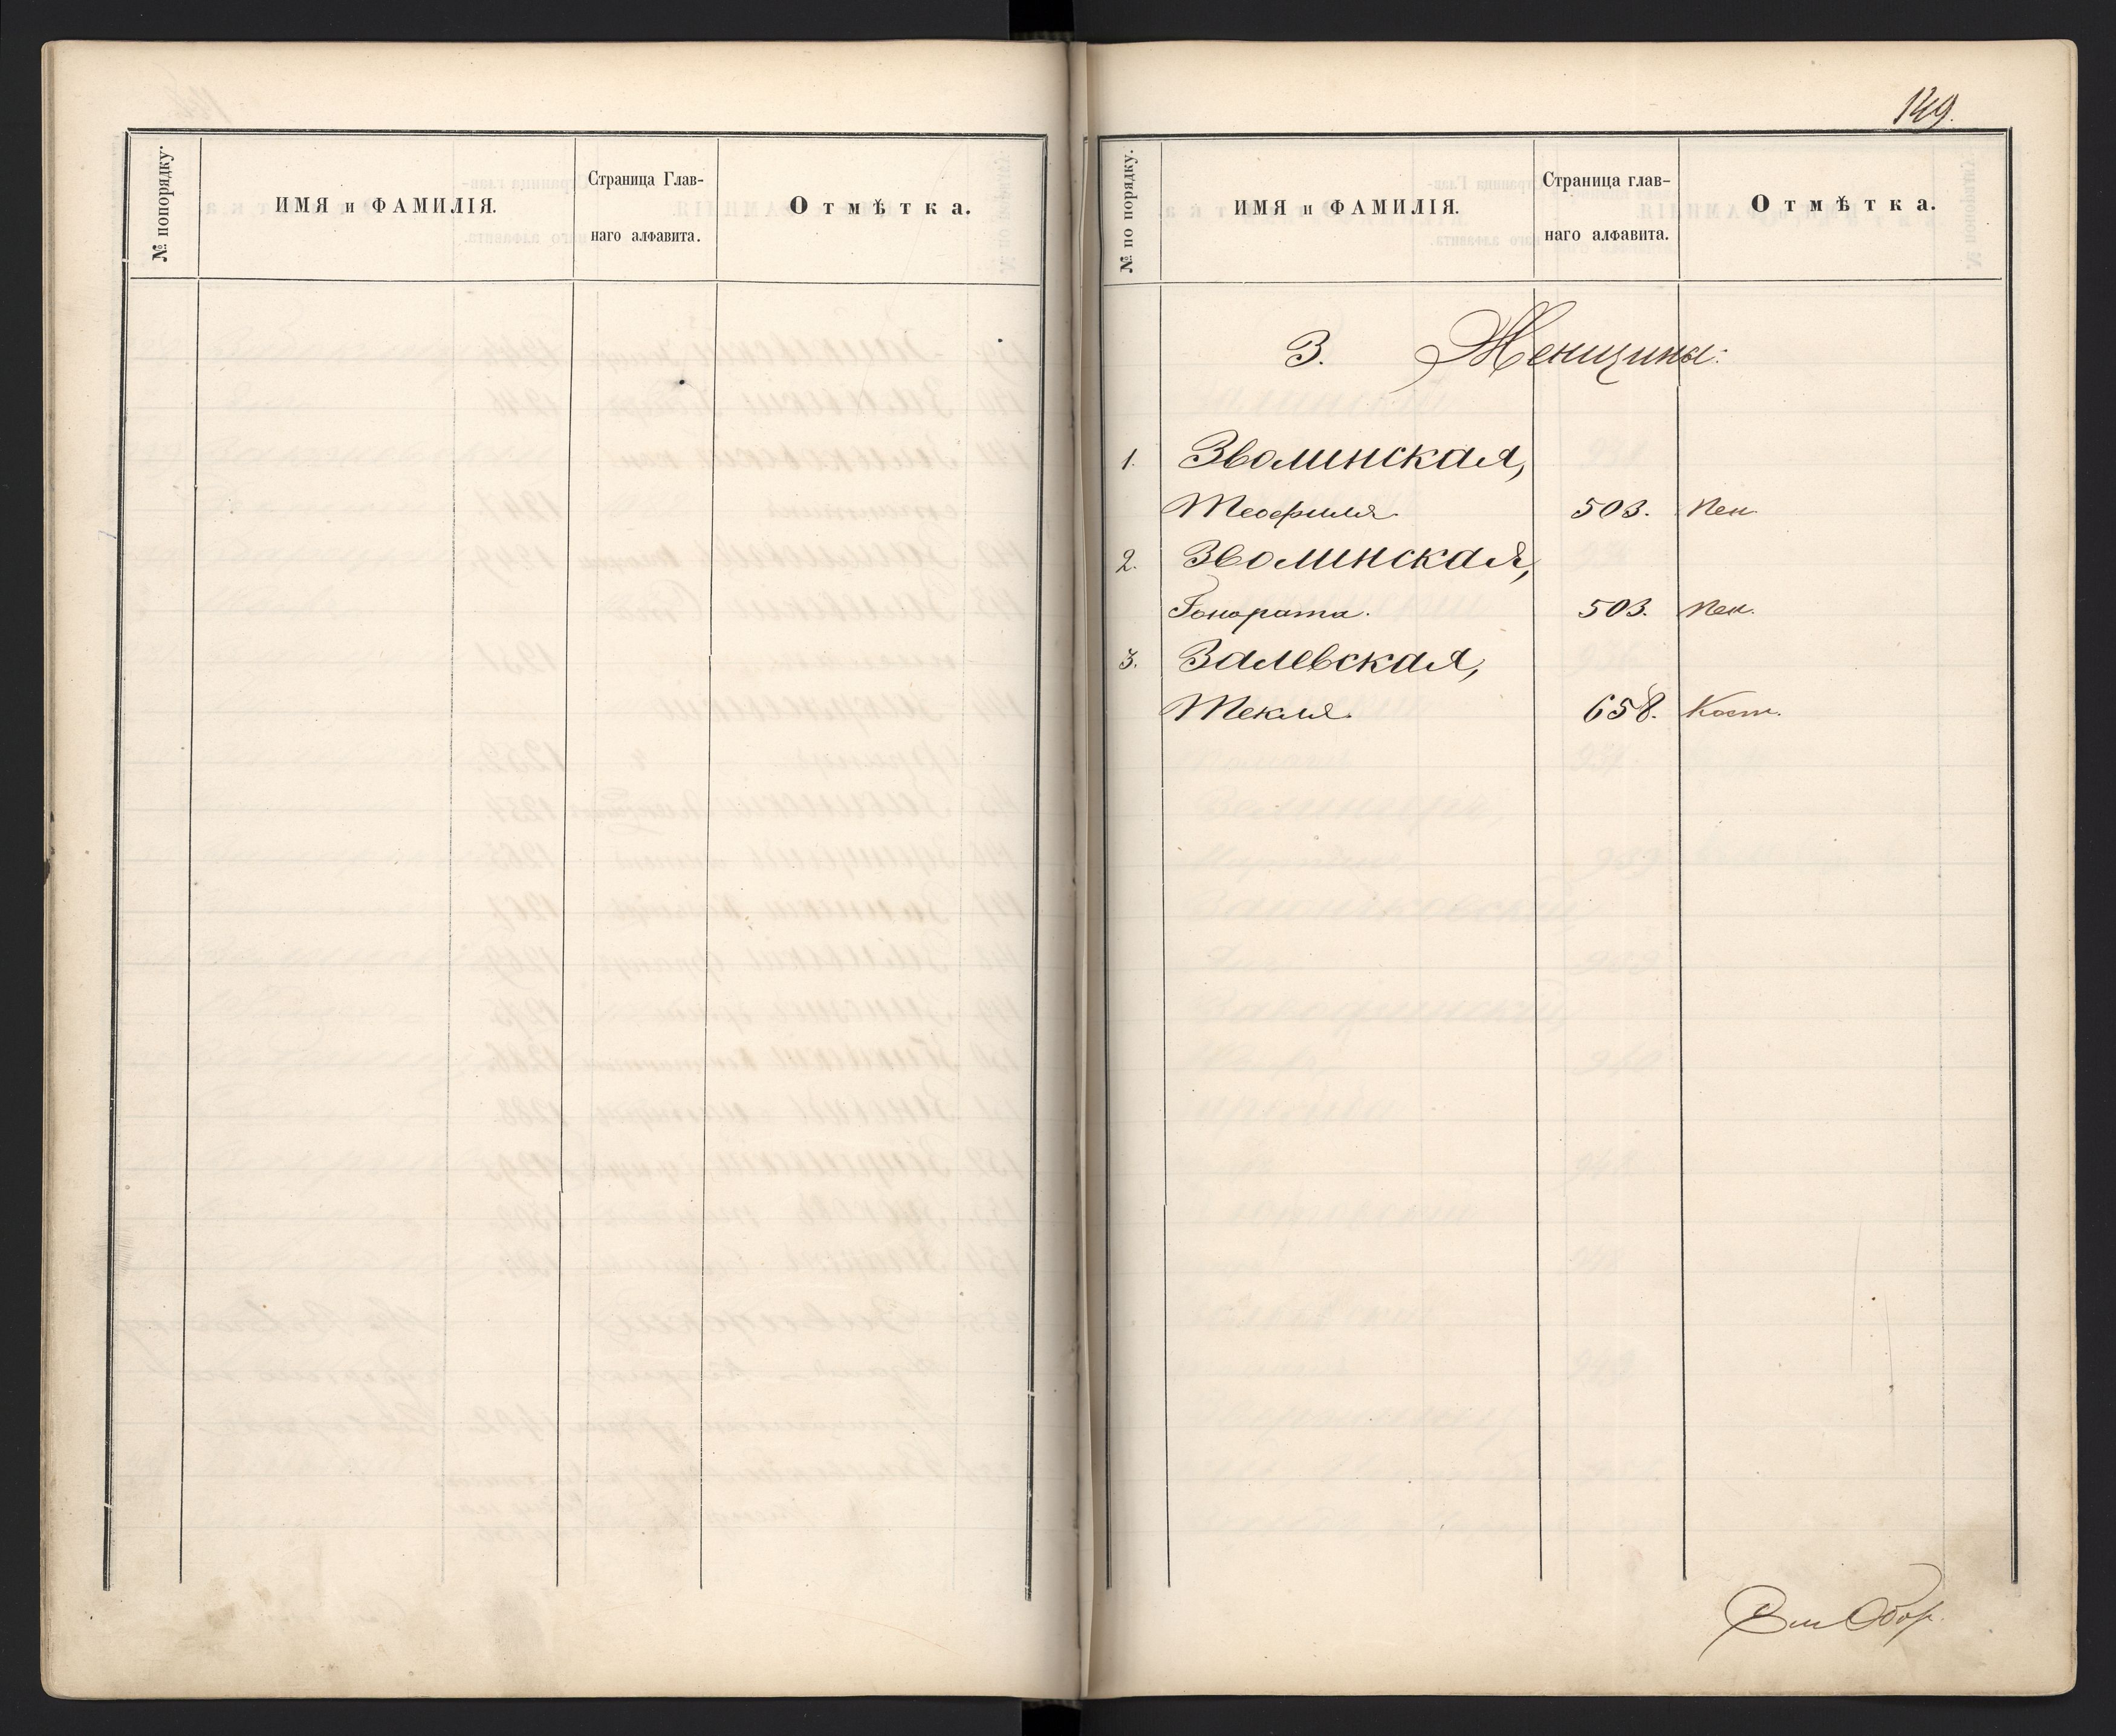 № попорядку.
ИМЯ и ФАМИЛІЯ.
Страница Глав-
наго алфавита.
Отмѣтка.
149.
№ по порядку.
ИМЯ и ФАМИЛІЯ.
Страница глав-
наго алфавита.
Отмѣтка.
З. Женщины:
1. Зволинская,
Теофиля. 503. Пен.
2. Зволинская,
Гонората. 503. Пен.
3. Залевская,
Текля. 658. Кост.